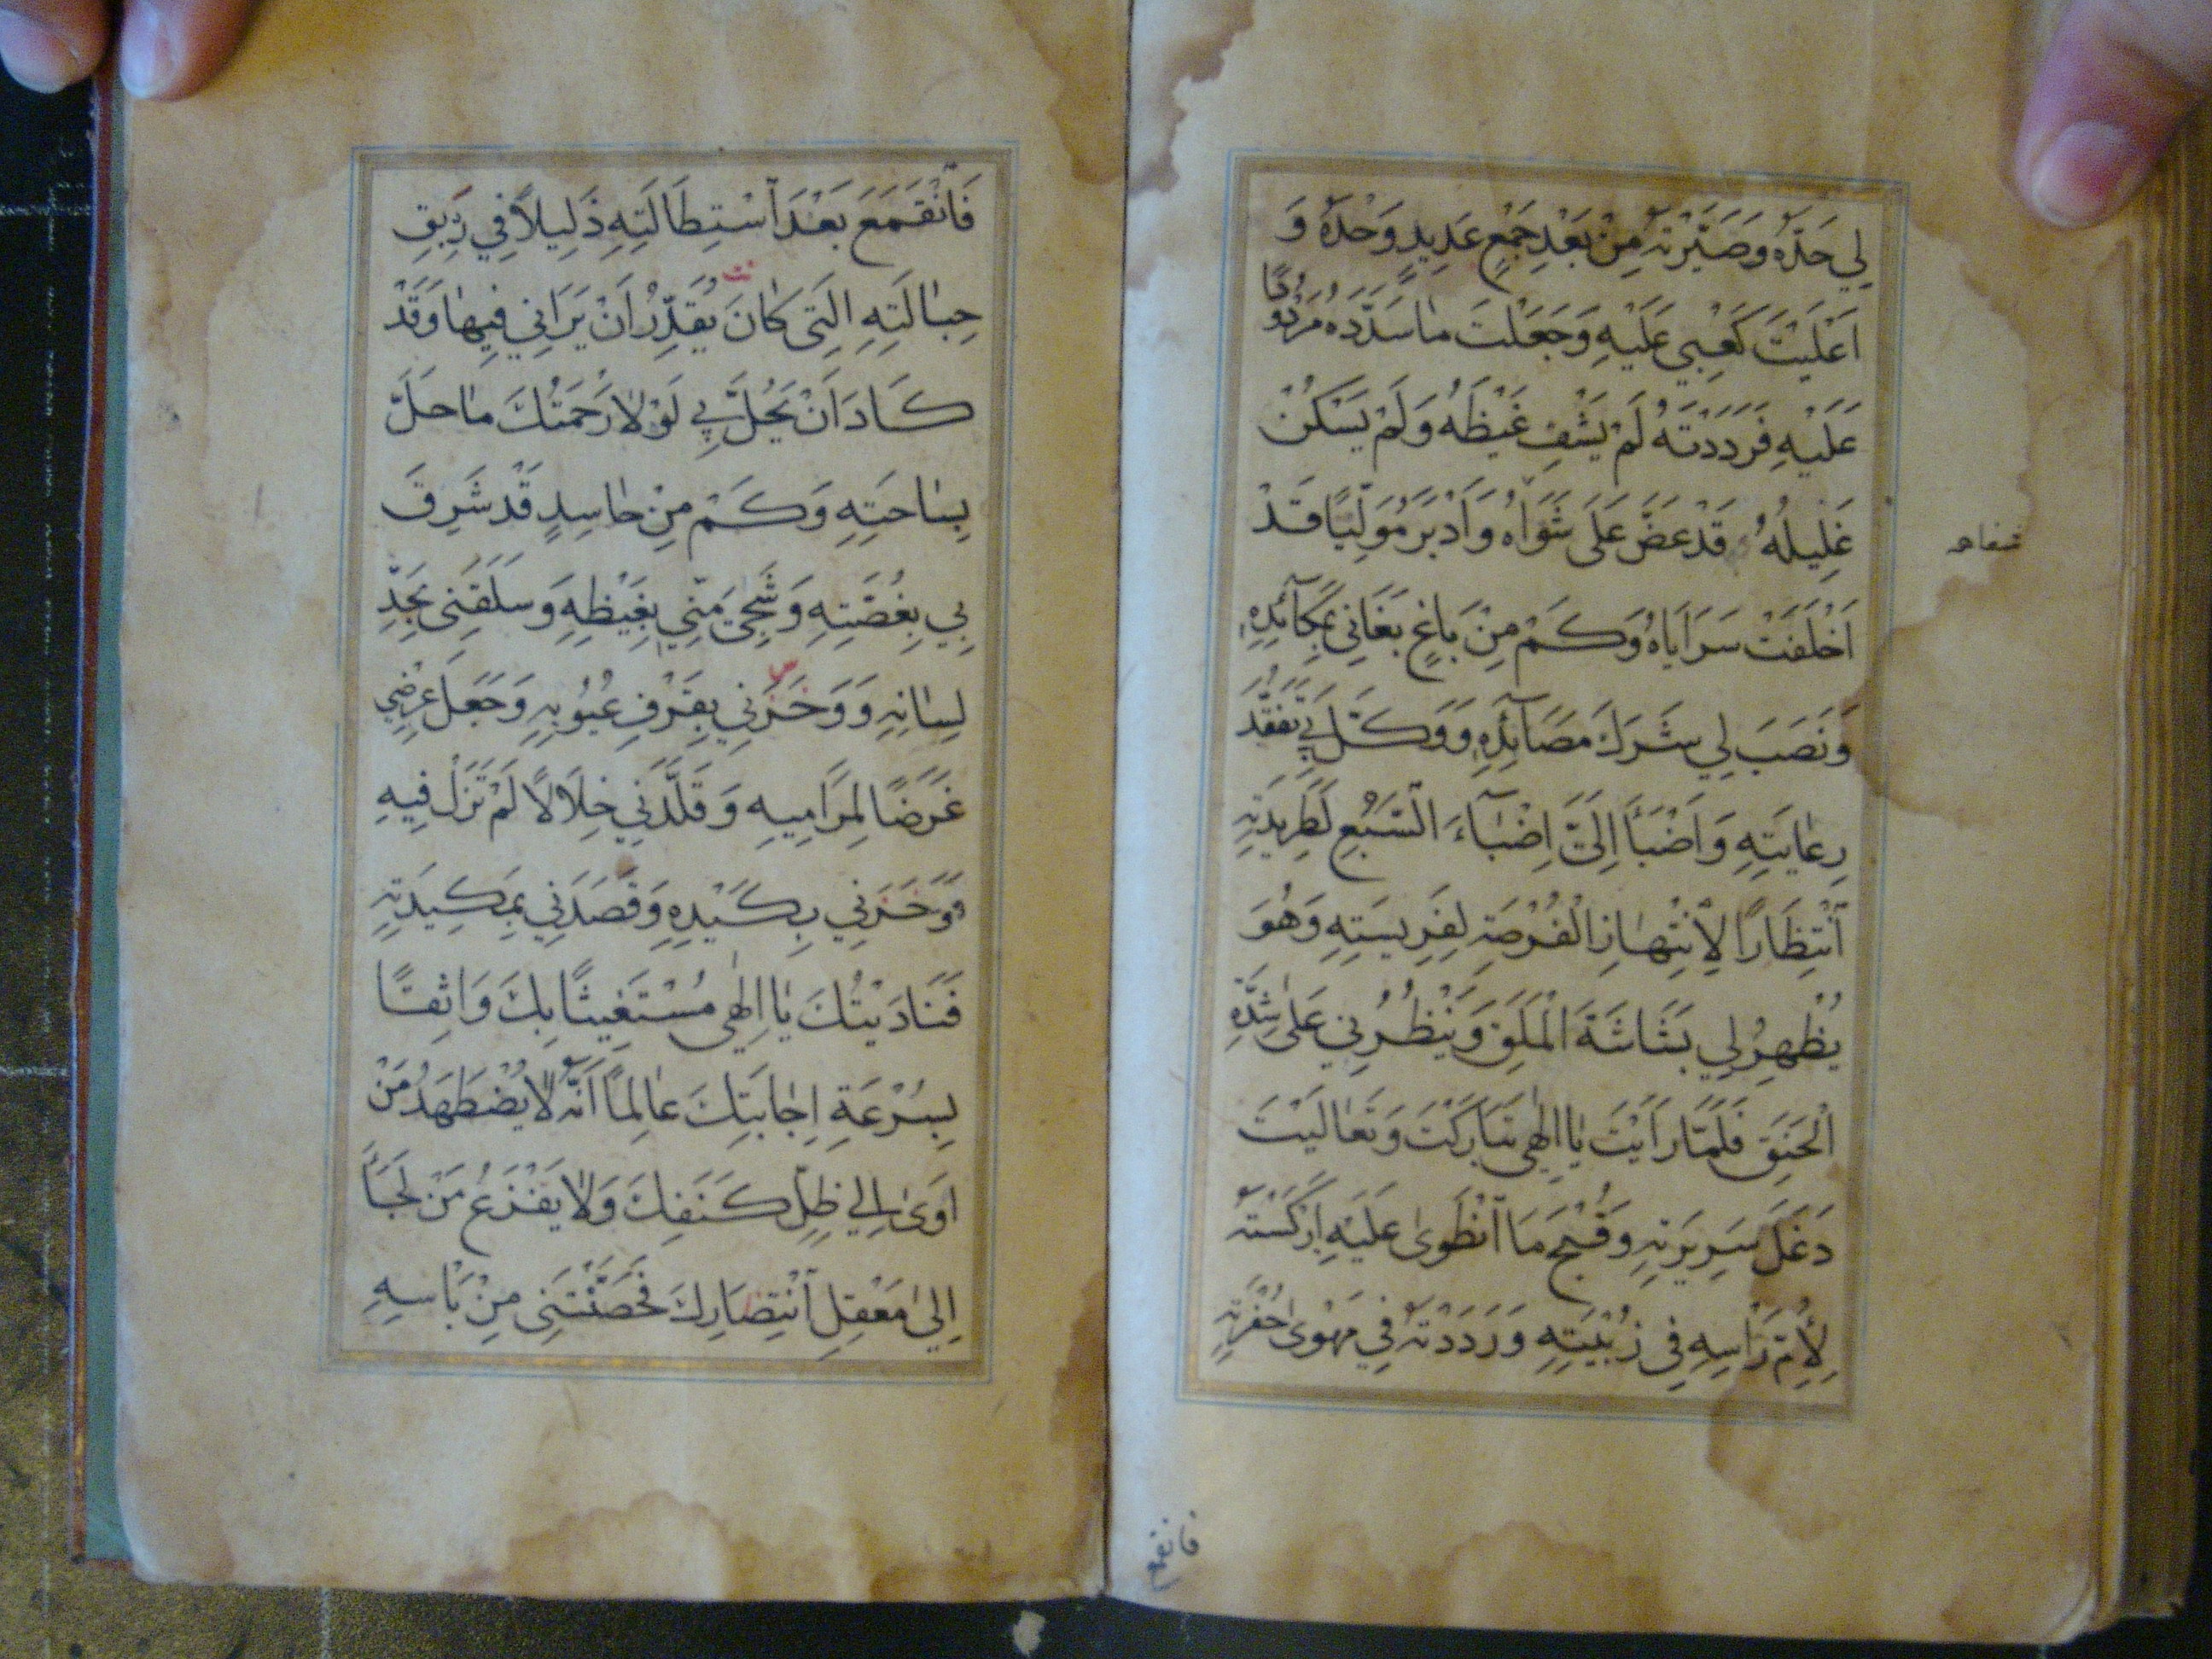 لِي حَدَّهُ وَصَيَّرْتَهُ مِنْ بَعْدِ جَمْعٍ عَدِيدٍ وَحْدَهُ وَ
اَعْلَيْتَ كَعْبِي عَلَيْهِ وَجَعَلْتَ مٰا سَدَّدَهُ مَرْدُودًا
عَلَيْهِ فَرَدَدْتَهُ لَمْ يَشْفِ غَيْظَهُ وَلَمْ يَسْكُنْ
غَلِيلُهُ قَدْ عَضَّ عَلَى شَوَاهُ وَاَدْبَرَ مُوَلِّيًا قَدْ
شفاه
اَخْلَفَتْ سَرَايَاهُ وَكَمْ مِنْ بَاغٍ بَغَانِي بِمَكَآئِدِهِ
وَنَصَبَ لِي شَرَكَ مَصَآئِدِهِ وَوَكَّلَ بِي تَفَقُّدَ
رِعٰايَتِهِ وَاَضْبَأَ اِلَيَّ اِضْبٰآءَ السَّبُعِ لِطَرِيدَتِهِ
اَنْتِظَارًا لِأِنْتِهٰازِ الْفُرْصَةِ لِفَرِيسَتِهِ وَهُوَ
يُظْهِرُ لِي بَشَاشَةَ الْمَلَقِ وَيَنْظُرُنِي عَلٰى شِدَّةِ
الْحَنَقِ فَلَمَّا رَاَيْتَ يٰا اِلٰهِي تَبَارَكْتَ وَتَعٰالَيْتَ
دَغَلَ سَرِيرَتِهِ وَقُبْحَ مَا انْطَوىٰ عَلَيْهِ اَرْكَسْتَهُ
لِأُمِّ رَاْسِهِ فِي زُبْيَتِهِ وَرَدَدْتَهُ فِي مَهْوىٰ حُفْرَتِهِ
فانقمع
فَانْقَمَعَ بَعْدَ اسْتِطَالَتِهِ ذَلِيلًا فِي رِبَقِ
حِبٰالَتِهِ الَّتِي كٰانَ يُقَدِّرُ اَنْ يَرَانِي فِيهٰا وَقَدْ
كَادَ اَنْ يَحُلَّ بِي لَوْلٰا رَحْمَتُكَ مٰا حَلَّ
بِسٰاحَتِهِ وَكَمْ مِنْ حٰاسِدٍ قَدْ شَرِقَ
بِي بِغُصَّتِهِ وَشَجِيَ مِنِّي بِغَيْظِهِ وَسَلَقَنِي بِحَدِّ
لِسٰانِهِ وَوَخَزَنِي بِقَرْفِ عُيُوبِهِ وَجَعَلَ عِرْضِي
غَرَضًا لِمَرَامِيهِ وَقَلَّدَنِي خِلَالًا لَمْ تَزَلْ فِيهِ
وَوَخَزَنِي بِكَيْدِهِ وَقَصَدَنِي بِمَكِيدَتِهِ
فَنَادَيْتُكَ يٰا اِلٰهِي مُسْتَغِيثًا بِكَ وَاثِقًا
بِسُرْعَةِ اِجٰابَتِكَ عٰالِمًا اَنَّهُ لٰا يُضْطَهَدُ مَنْ
اَوىٰ اِلٰي ظِلِّ كَنَفِكَ وَلٰا يَفْزَعُ مَنْ لَجَأَ
اِلىٰ مَعْقِلِ انْتِصَارِكَ فَحَصَّنْتَنِي مِنْ بَاْسِهِ